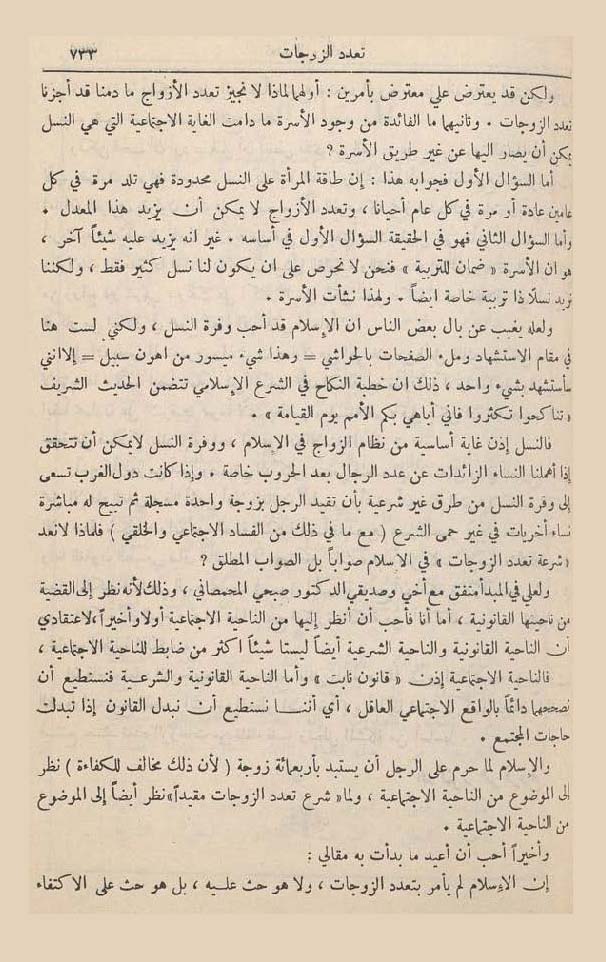 تعدد الزوجات ٧٣٣
ولكن قد يعترض علي معترض بأمرين : أولهما لماذا لا نجيز تعدد الأزواج ما دمنا قد أجزنا
تعدد الزوجات . وثانيهما ما الفائدة من وجود الأسرة ما دامت الغاية الاجتماعية التي هي النسل
يمكن أن يصار اليها عن غير طريق الأسرة ؟
أما السؤال الأول فجوابه هذا : إن طاقة المرأة على النسل محدودة فهي تلد مرة في كل
عامين عادة أو مرة في كل عام أحيانا ، وتعدد الأزواج لا يمكن أن يزيد هذا المعدل .
وأما السؤال الثاني فهو في الحقيقة السؤال الأول في أساسه . غير انه يزيد عليه شيئاً آخر ،
هو ان الأسرة « ضمان للتربية » فنحن لا نحرص على ان يكون لنا نسل كثير فقط ، ولكننا
نريد نسلاً ذا تربية خاصة ايضاً . ولهذا نشأت الأسرة .
ولعله يغيب عن بال بعض الناس ان الإسلام قد أحب وفرة النسل ، ولكني لست هنا
في مقام الاستشهاد وملء الصفحات بالحواشي = وهذا شيء ميسور من اهون سبيل = إلا انني
سأستشهد بشيء واحد ، ذلك ان خطبة النكاح في الشرع الإسلامي تتضمن الحديث الشريف
« تناكحوا تكثروا فاني أباهي بكم الأمم يوم القيامة » .
فالنسل إذن غاية أساسية من نظام الزواج في الإسلام ، ووفرة النسل لا يمكن أن تتحقق
إذا أهملنا النساء الزائدات عن عدد الرجال بعد الحروب خاصة . وإذا كانت دول الغرب تسعى
إلى وفرة النسل من طرق غير شرعية بأن تقيد الرجل بزوجة واحدة مسجلة ثم تبيح له مباشرة
نساء أخريات في غير حمى الشرع ( مع ما في ذلك من الفساد الاجتماعي والخلقي ) فلماذا لا نعد
« شرعة تعدد الزوجات » في الاسلام صواباً بل الصواب المطلق ؟
ولعلي في المبدأ متفق مع أخي وصديقي الدكتور صبحي المحمصاني ، وذلك لأنه نظر إلى القضية
من ناحيتها القانونية ، أما أنا فأحب أن أنظر إليها من الناحية الاجتماعية أولا وأخيراً ، لاعتقادي
أن الناحية القانونية والناحية الشرعية أيضاً ليستا شيئاً اكثر من ضابط للناحية الاجتماعية ،
فالناحية الاجتماعية إذن « قانون ثابت » وأما الناحية القانونية والشرعية فنستطيع أن
نصححهما دائماً بالواقع الاجتماعي العاقل ، أي أننا نستطيع أن نبدل القانون إذا تبدلت
حاجات المجتمع .
والإسلام لما حرم على الرجل أن يستبد بأربعمائة زوجة ( لأن ذلك مخالف للكفاءة ) نظر
إلى الموضوع من الناحية الاجتماعية ، ولما « شرع تعدد الزوجات مقيداً » نظر أيضاً إلى الموضوع
من الناحية الاجتماعية .
وأخيراً أحب أن أعيد ما بدأت به مقالي :
إن الإسلام لم يأمر بتعدد الزوجات ، ولا هو حث عليه ، بل هو حث على الاكتفاء